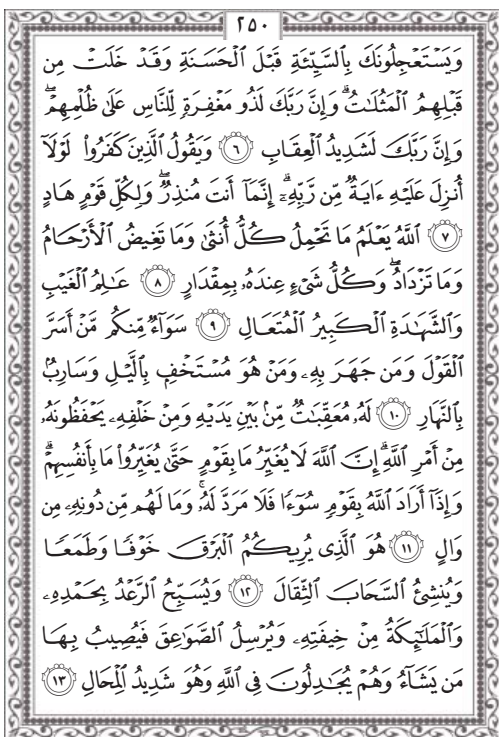 ٢٥٠
وَيَسْتَعْجِلُونَكَ بِٱلسَّيِّئَةِ قَبْلَ ٱلْحَسَنَةِ وَقَدْ خَلَتْ مِن
قَبْلِهِمُ ٱلْمَثُلَٰتُۗ وَإِنَّ رَبَّكَ لَذُو مَغْفِرَةٍ لِّلنَّاسِ عَلَىٰ ظُلْمِهِمْۖ
وَإِنَّ رَبَّكَ لَشَدِيدُ ٱلْعِقَابِ ٦ وَيَقُولُ ٱلَّذِينَ كَفَرُوا۟ لَوْلَآ
أُنزِلَ عَلَيْهِ ءَايَةٌ مِّن رَّبِّهِۦٓۗ إِنَّمَآ أَنتَ مُنذِرٌۖ وَلِكُلِّ قَوْمٍ هَادٍ
٧ ٱللَّهُ يَعْلَمُ مَا تَحْمِلُ كُلُّ أُنثَىٰ وَمَا تَغِيضُ ٱلْأَرْحَامُ
وَمَا تَزْدَادُۖ وَكُلُّ شَىْءٍ عِندَهُۥ بِمِقْدَارٍ ٨ عَٰلِمُ ٱلْغَيْبِ
وَٱلشَّهَٰدَةِ ٱلْكَبِيرُ ٱلْمُتَعَالِ ٩ سَوَآءٌ مِّنكُم مَّنْ أَسَرَّ
ٱلْقَوْلَ وَمَن جَهَرَ بِهِۦ وَمَنْ هُوَ مُسْتَخْفٍۭ بِٱلَّيْلِ وَسَارِبٌۢ
بِٱلنَّهَارِ ١٠ لَهُۥ مُعَقِّبَٰتٌ مِّنۢ بَيْنِ يَدَيْهِ وَمِنْ خَلْفِهِۦ يَحْفَظُونَهُۥ
مِنْ أَمْرِ ٱللَّهِۗ إِنَّ ٱللَّهَ لَا يُغَيِّرُ مَا بِقَوْمٍ حَتَّىٰ يُغَيِّرُوا۟ مَا بِأَنفُسِهِمْۗ
وَإِذَآ أَرَادَ ٱللَّهُ بِقَوْمٍ سُوٓءًا فَلَا مَرَدَّ لَهُۥۚ وَمَا لَهُم مِّن دُونِهِۦ مِن
وَالٍ ١١ هُوَ ٱلَّذِى يُرِيكُمُ ٱلْبَرْقَ خَوْفًا وَطَمَعًا
وَيُنشِئُ ٱلسَّحَابَ ٱلثِّقَالَ ١٢ وَيُسَبِّحُ ٱلرَّعْدُ بِحَمْدِهِۦ
وَٱلْمَلَٰٓئِكَةُ مِنْ خِيفَتِهِۦ وَيُرْسِلُ ٱلصَّوَٰعِقَ فَيُصِيبُ بِهَا
مَن يَشَآءُ وَهُمْ يُجَٰدِلُونَ فِى ٱللَّهِ وَهُوَ شَدِيدُ ٱلْمِحَالِ ١٣